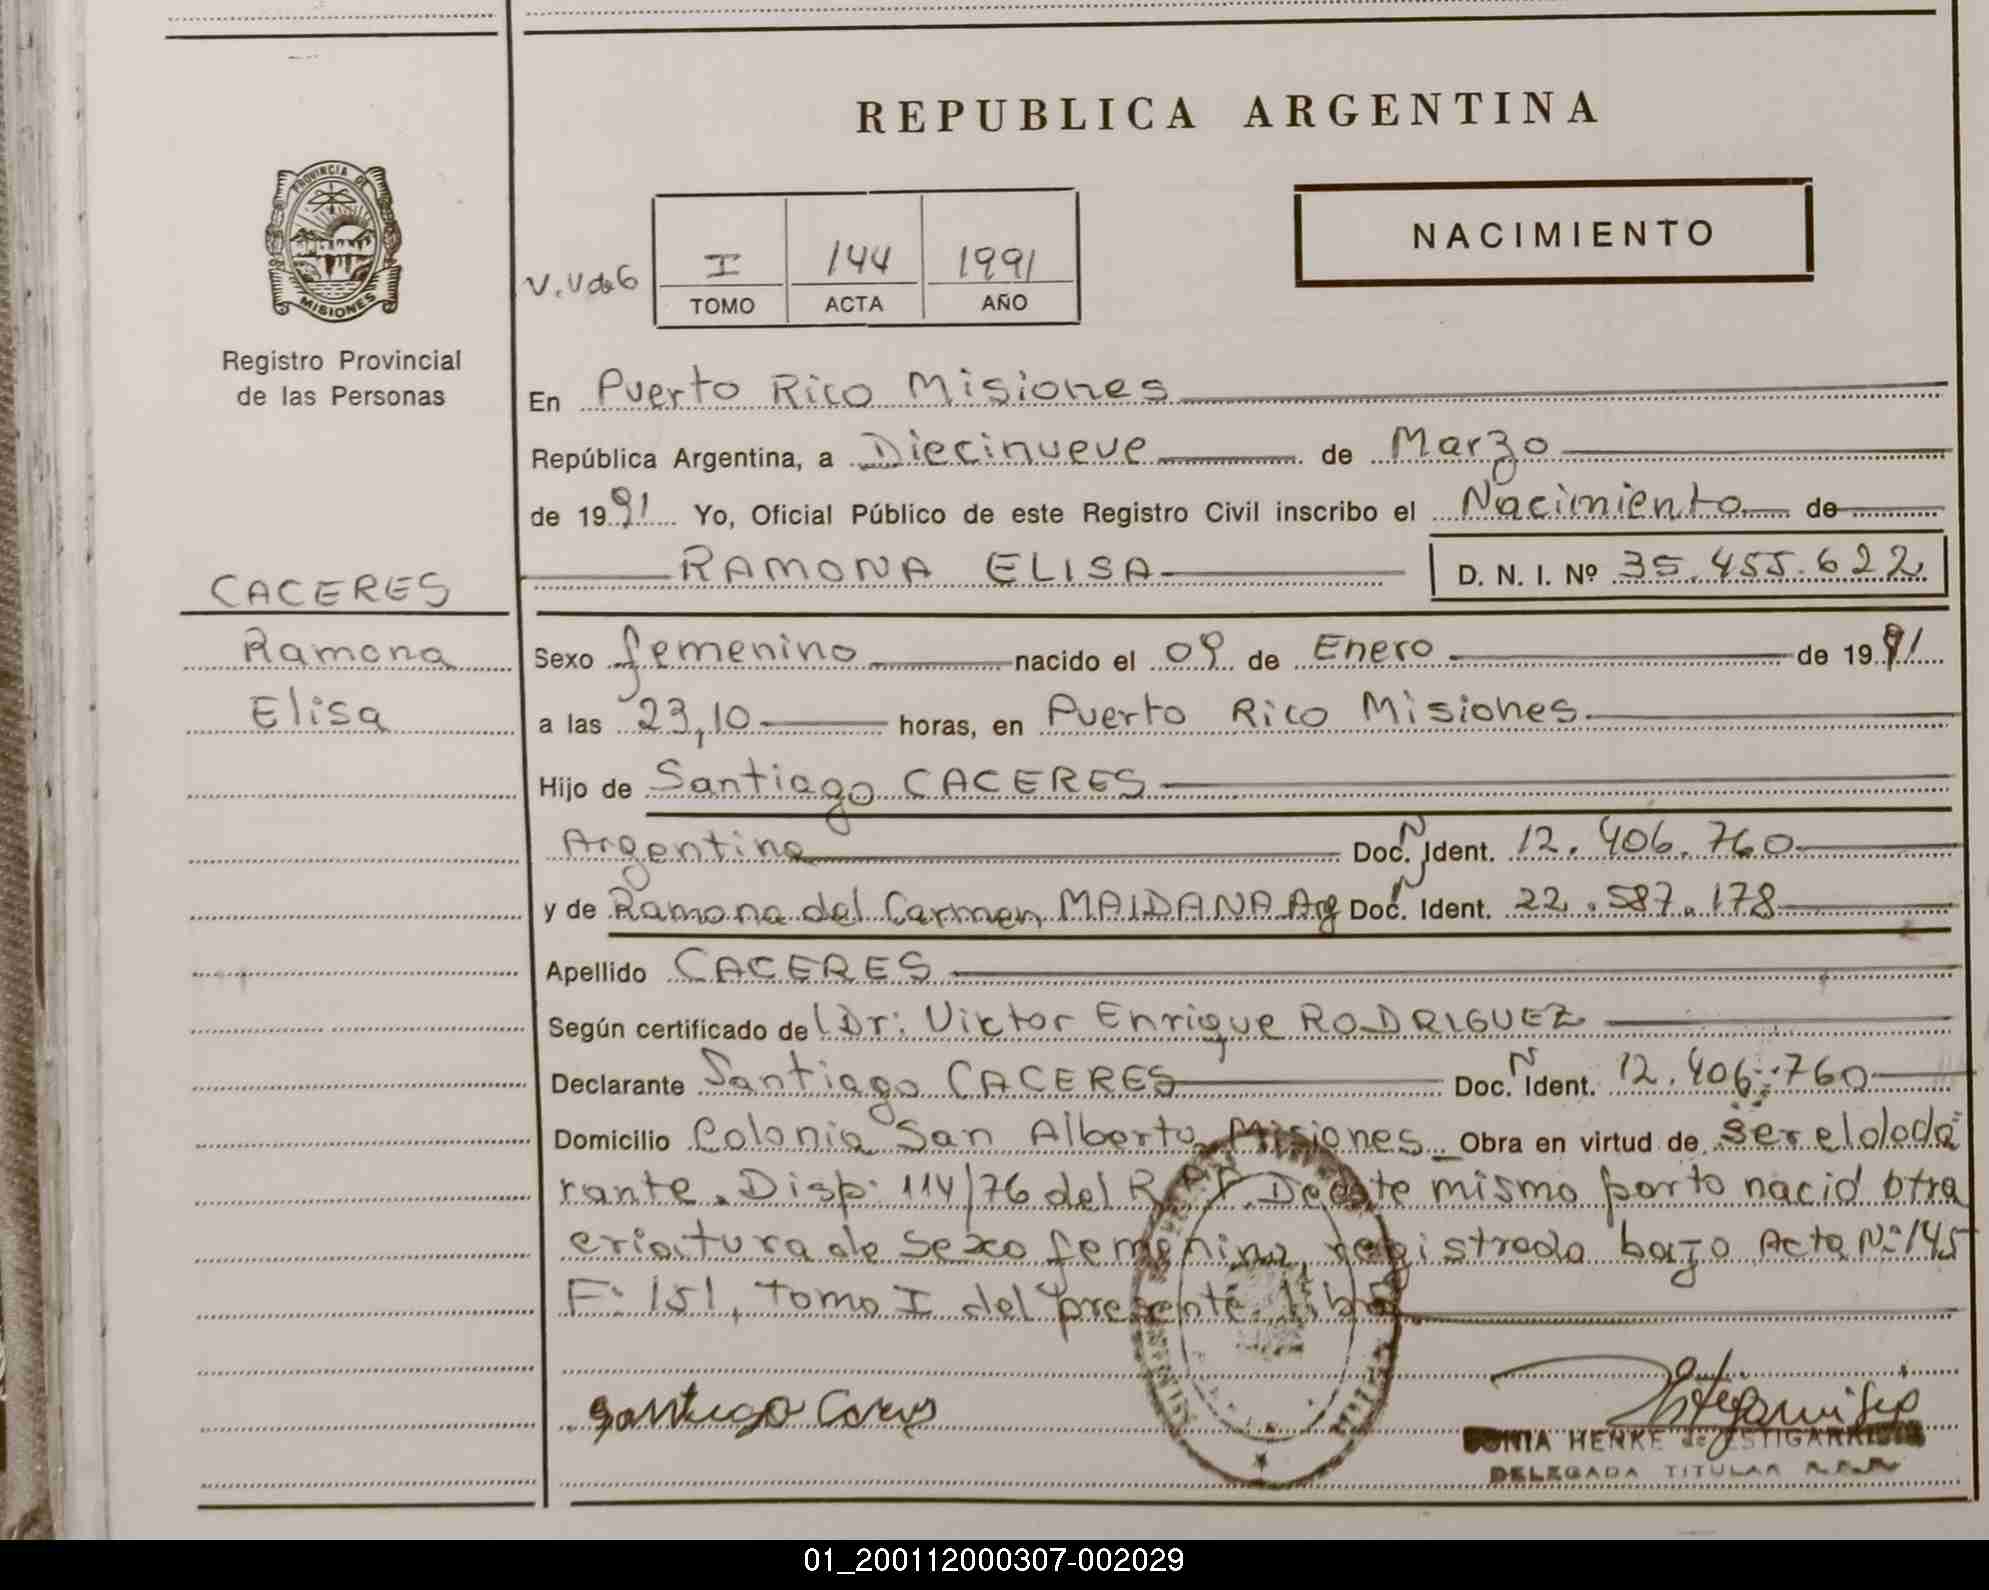 REPUBLICA ARGENTINA
PROVINCIA DE
MISIONES
Registro Provincial
de las Personas
NACIMIENTO
V.V de G
I 144 1991
TOMO ACTA AÑO
En Puerto Rico Misiones
República Argentina, a Diecinueve de Marzo
de 1991 Yo, Oficial Público de este Registro Civil inscribo el Nacimiento de
RAMONA ELISA D. N. I. Nº 35.455.622
CACERES
Ramona
Elisa
Sexo femenino nacido el 09 de Enero de 1991
a las 23,10 horas, en Puerto Rico Misiones
Hijo de Santiago CACERES
Argentino Doc. N Ident. 12.406.760
y de Ramona del Carmen MAIDANA Arg Doc. N Ident. 22.587.178
Apellido CACERES
Según certificado de Dr: Victor Enrique RODRIGUEZ
Declarante Santiago CACERES Doc. N Ident. 12.406.760
Domicilio Colonia San Alberto Misiones Obra en virtud de ser el decla
rante. Disp: 114/76 del R.P.P. De este mismo parto nacio otra
criatura de sexo femenino, registrada bajo Acta Nº 145
F: 151, tomo I del presente libro
Santiago Caceres
SONIA HENKE de ESTIGARRIBIA
DELEGADA TITULAR
01_200112000307-002029